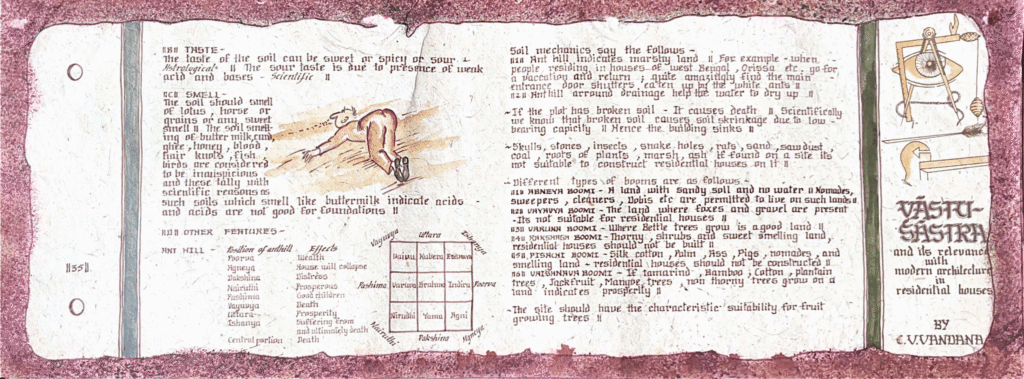 ॥B॥ TASTE -
The taste of the soil can be sweet or spicy or sour -
Astrological ॥ The sour taste is due to presence of weak
acid and bases - Scientific ॥
॥C॥ SMELL -
The soil should smell
of lotus, horse or
grains or any sweet
smell ॥ The soil smell-
ing of butter milk,
ghee, honey, blood,
hair knots, fish,
birds are considered
to be inauspicious
and these tally with
scientific reasons as
such soils which smell like buttermilk indicate acids -
and acids are not good for foundations ॥
॥D॥ OTHER FEATURES -
ANT HILL - Position of anthill Effects
Poorva Wealth
Agneya House will collapse
Dakshina Distress
Nairuthi Prosperous
Pashima Good children
Vayavya Death
Uttara Prosperity
Ishanya Suffering from
and ultimately death
Central portion Death
Vayavya Uttara Eshanya
Vaivu Kubera Eshanya
Pashima Varuna Brahma Indira Poorva
Niruthi Yama Agni
Nairuthi Dakshina Agneya
॥35॥
Soil mechanics say the follows -
Ant Hill indicates marshy land ॥ For example - when
people residing in houses of West Bengal, Orissa etc. go for
a vaccation and return; quite amazingly find the main
entrance door shutters eaten up by the white ants ॥
Anthill arround drainage help the water to dry up ॥
- If the plot has broken soil - It causes death ॥ Scientifically
we know that broken soil causes soil skrinkage due to low -
bearing capicity ॥ Hence the building sinks ॥
- Skulls, stones, insects, snake holes, rats, sand, sawdust,
coal, roots of plants, marsh, ash if found on a site its
not suitable to construct residential houses on it ॥
- Different types of booms are as follows -
॥1॥ AGNEYA BOOMI - A land with sandy soil and no water ॥ Nomades,
sweepers, cleaners, Dobis etc are permitted to live on such lands ॥
॥2॥ VAYUVYA BOOMI - The land where foxes and gravel are present
- Its not suitable for residential houses ॥
॥3॥ VARUNA BOOMI - Where Bettle trees grow is a good land ॥
॥4॥ RAKSHASH BOOMI - Thorny, shrubs and sweet smelling land,
residential houses should not be built ॥
॥5॥ PISACHI BOOMI - Silk cotton, Palm, Ass, Pigs, nomades, and
smelling land - residential houses should not be constructed ॥
॥6॥ VAISHNAVA BOOMI - If tamarind, Bamboo, Cotton, plantain
trees, Jackfruit, Mangoe trees, non thorny trees grow on a
land indicates prosperity ॥
- The site should have the characteristic suitability for fruit
growing trees ॥
VĀSTU-
ŚĀSTRA
and its relevance
with
modern architecture
in
residential houses
BY
C.V.VANDANA